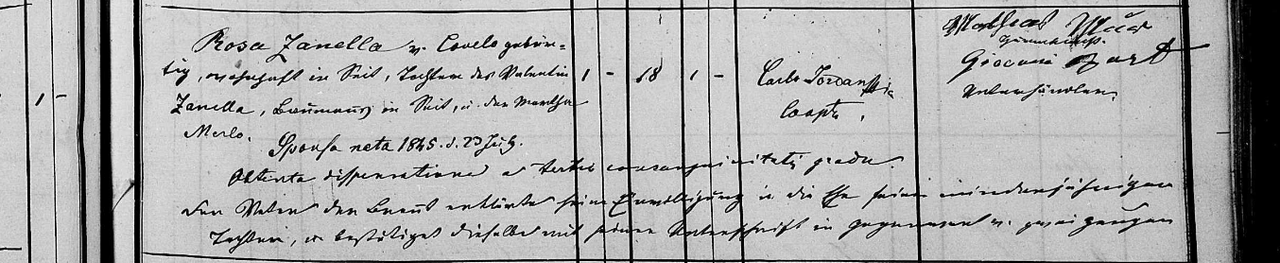 Rosa Zanella v. Covelo gebür-
tig, wohnhaft in Seit, Tochter des Valentin
Zanella, Baumanns in Seit, u. der Martha
Merlo.
Sponsa nata 1845. d. 23 July.
Obtenta dispensatione a tertio consanguinitatis gradu.
Der Vater der Braut erklärte seine Einwilligung in die Ehe seiner minderjährigen
Tochter, u. bestätiget dieselbe mit seiner Unterschrift in Gegenwart v. zwei Zeugen
1 -
1 - 18 1 -
Carlo
Coopr.
Mathias
Giovani
Unterhändler.